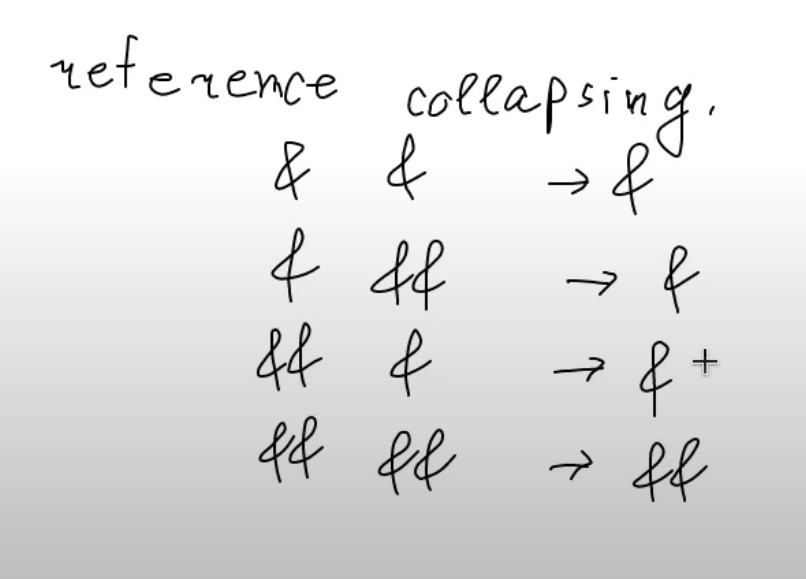 reference collapsing.
& & → &
& && → &
&& & → &
&& && → &&